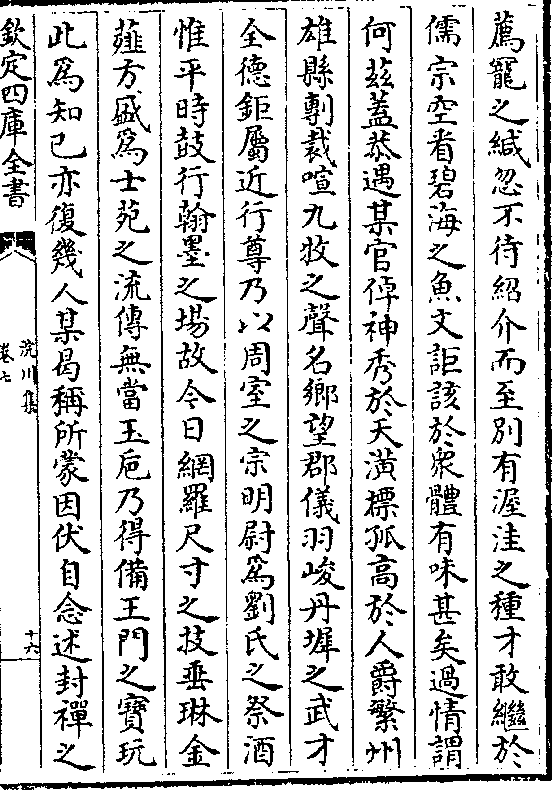 薦寵之緘忽不待紹介而至別有渥洼之種才敢繼於
儒宗空看碧海之魚文詎該於衆體有味甚矣過情謂
何茲蓋恭遇某官倬神秀於天潢摽孤高於人爵繫州
雄縣剸裁喧九牧之聲名鄉望郡儀羽峻丹墀之武才
全德鉅屬近行尊乃以周室之宗明尉為劉氏之祭酒
惟平時鼓行翰墨之場故今日網羅尺寸之技垂琳金
薤方盛為士苑之流傳無當玉巵乃得備王門之寶玩
此為知己亦復幾人某曷稱所蒙因伏自念述封禪之
欽定四庫全書
洸川集
卷七
十六